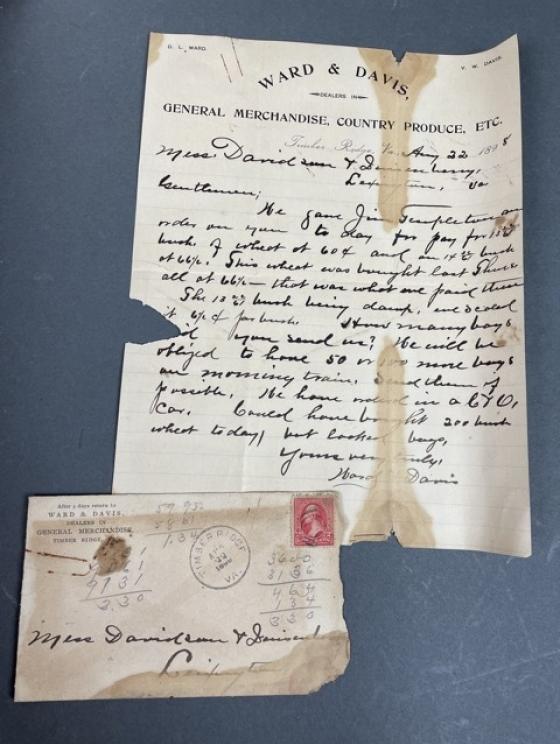 G. L. WARD.
V. W. DAVIS.
WARD & DAVIS,
DEALERS IN
GENERAL MERCHANDISE, COUNTRY PRODUCE, ETC.
Timber Ridge, Va. Aug 22 189
Mess. Davidson &
Lexington, Va
Gentlemen;
We gave Jim Templeton an
order on you to day for pay for
bush. of wheat at 60¢ and on bush
at 66¢. This wheat was bought last
all at 66¢ - that was what we paid them
The bush being damp, we docked
it 6¢ per bush. How many bags
you send us? We will be
obliged to have 50 or 100 more bags
on morning train. Send them if
possible. We have ordered in a C & O,
Car. Could have bought 200 bush
wheat today, but lacked bags,
Yours very truly,
Ward Davis
After 5 days return to
WARD & DAVIS,
DEALERS IN
GENERAL MERCHANDISE,
TIMBER RIDGE,
TIMBER RIDGE
VA.
9131
330
3136
464
134
330
Mess Davidson &
Lexington